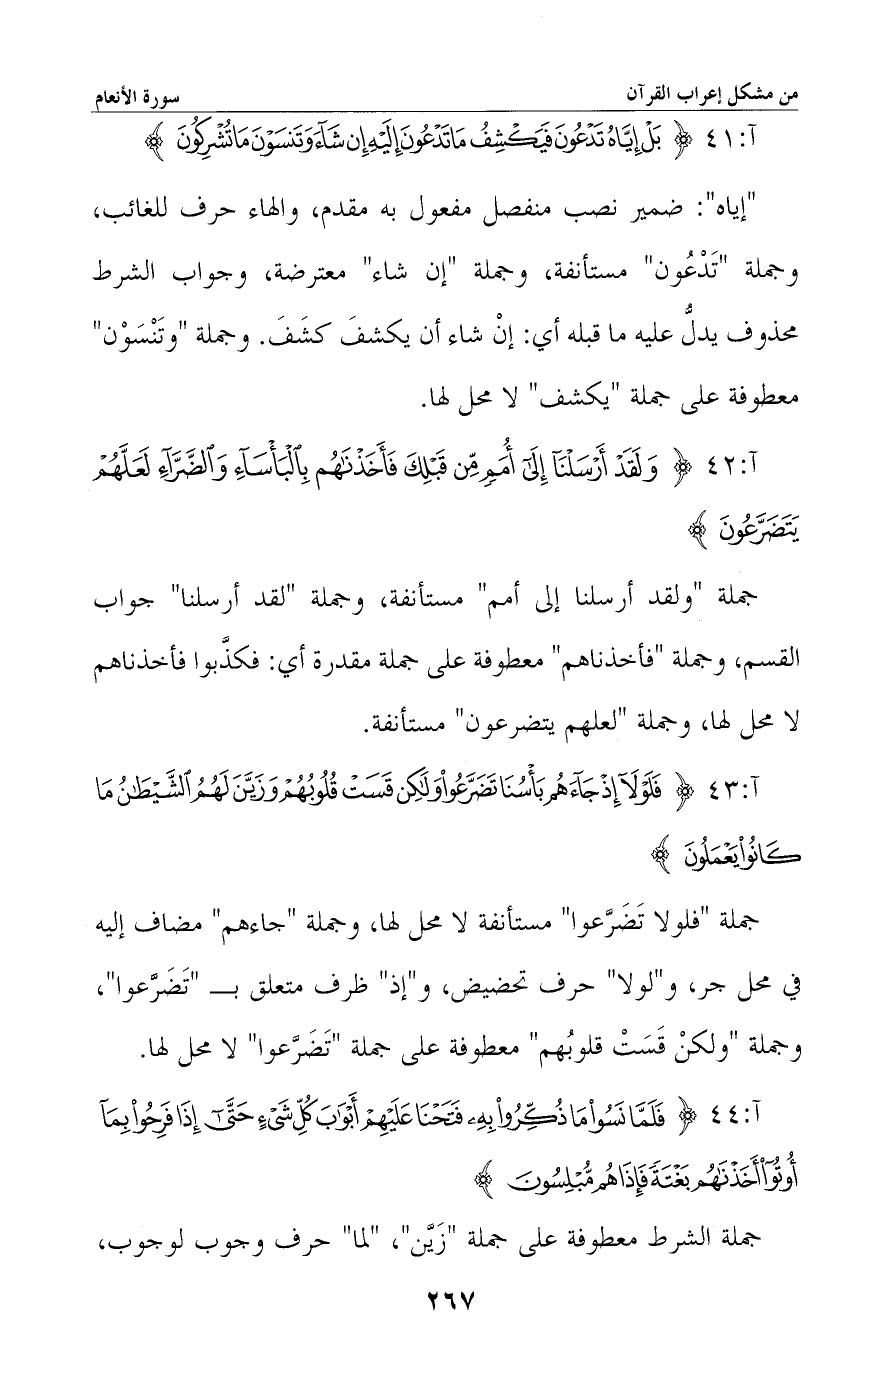 من مشكل إعراب القرآن
سورة الأنعام
آ:٤١ ﴿ بَلْ إِيَّاهُ تَدْعُونَ فَيَكْشِفُ مَا تَدْعُونَ إِلَيْهِ إِن شَآءَ وَتَنسَوْنَ مَا تُشْرِكُونَ ﴾
"إياه": ضمير نصب منفصل مفعول به مقدم، والهاء حرف للغائب،
وجملة "تَدْعُون" مستأنفة، وجملة "إن شاء" معترضة، وجواب الشرط
محذوف يدلُّ عليه ما قبله أي: إنْ شاء أن يكشفَ كشَفَ. وجملة "وتَنْسَوْن"
معطوفة على جملة "يكشف" لا محل لها.
آ:٤٢ ﴿ وَلَقَدْ أَرْسَلْنَآ إِلَىٰٓ أُمَمٍ مِّن قَبْلِكَ فَأَخَذْنَٰهُم بِٱلْبَأْسَآءِ وَٱلضَّرَّآءِ لَعَلَّهُمْ
يَتَضَرَّعُونَ ﴾
جملة "ولقد أرسلنا إلى أمم" مستأنفة، وجملة "لقد أرسلنا" جواب
القسم، وجملة "فأخذناهم" معطوفة على جملة مقدرة أي: فكذَّبوا فأخذناهم
لا محل لها، وجملة "لعلهم يتضرعون" مستأنفة.
آ:٤٣ ﴿ فَلَوْلَآ إِذْ جَآءَهُم بَأْسُنَا تَضَرَّعُوا۟ وَلَٰكِن قَسَتْ قُلُوبُهُمْ وَزَيَّنَ لَهُمُ ٱلشَّيْطَٰنُ مَا
كَانُوا۟ يَعْمَلُونَ ﴾
جملة "فلولا تَضَرَّعوا" مستأنفة لا محل لها، وجملة "جاءهم" مضاف إليه
في محل جر، و"لولا" حرف تحضيض، و"إذ" ظرف متعلق بـــ "تَضَرَّعوا"،
وجملة "ولكنْ قَسَتْ قلوبُهم" معطوفة على جملة "تَضَرَّعوا" لا محل لها.
آ:٤٤ ﴿ فَلَمَّا نَسُوا۟ مَا ذُكِّرُوا۟ بِهِۦ فَتَحْنَا عَلَيْهِمْ أَبْوَٰبَ كُلِّ شَىْءٍ حَتَّىٰٓ إِذَا فَرِحُوا۟ بِمَآ
أُوتُوٓا۟ أَخَذْنَٰهُم بَغْتَةً فَإِذَا هُم مُّبْلِسُونَ ﴾
جملة الشرط معطوفة على جملة "زَيَّن"، "لما" حرف وجوب لوجوب،
٢٦٧